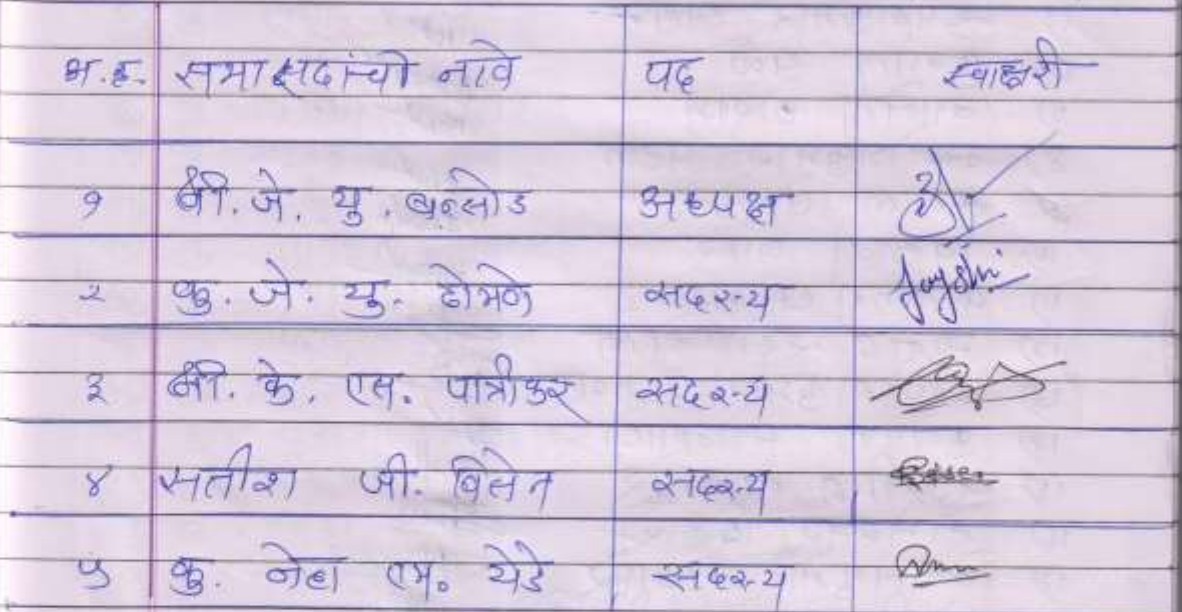 अ.क्र. सभासदांची नावे पद स्वाक्षरी
१ श्री. जे. यु. बन्सोड अध्यक्ष
२ कु. जे. यु. ढोमणे सदस्य Jayshri
३ श्री. के. एस. पात्रीकर सदस्य
४ सतीश जी. बिसेन सदस्य Bisen
५ कु. नेहा एम. येडे सदस्य